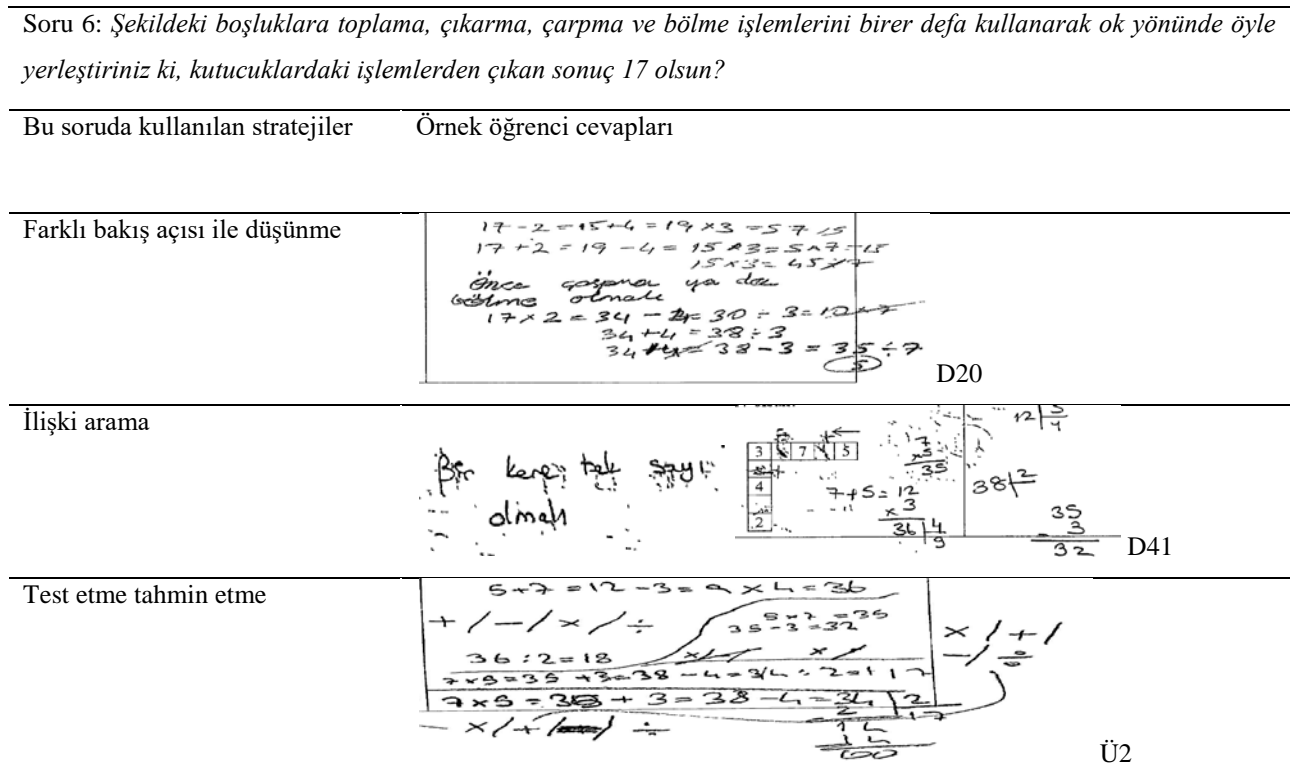 Soru 6: Şekildeki boşluklara toplama, çıkarma, çarpma ve bölme işlemlerini birer defa kullanarak ok yönünde öyle
yerleştiriniz ki, kutucuklardaki işlemlerden çıkan sonuç 17 olsun?
Bu soruda kullanılan stratejiler Örnek öğrenci cevapları
Farklı bakış açısı ile düşünme
17 - 2 = 15 + 4 = 19 x 3 = 57
17 + 2 = 19 - 4 = 15 x 3 = 5 x 7 = 15
15 x 3 = 45
Önce çarpma ya da
bölme olmalı
17 x 2 = 34 - 4 = 30 ÷ 3 = 10
34 + 4 = 38 ÷ 3
34 + 4 = 38 - 3 = 35 ÷ 7
5
D20
İlişki arama
Bir kere tek sayı
olmalı
3 7 5
4
2
7
x 5
35
7 + 5 = 12
x 3
36 4
9
12 3
4
38 2
35
- 3
32
D41
Test etme tahmin etme
5 + 7 = 12 - 3 = 9 x 4 = 36
+ / - / x / ÷
5 x 7 = 35
35 - 3 = 32
x / + /
- / ÷
36 : 2 = 18
7 x 5 = 35 + 3 = 38 - 4 = 34 ÷ 2 = 17
7 x 5 = 35 + 3 = 38 - 4 = 34 2
2 17
14
14
00
Ü2